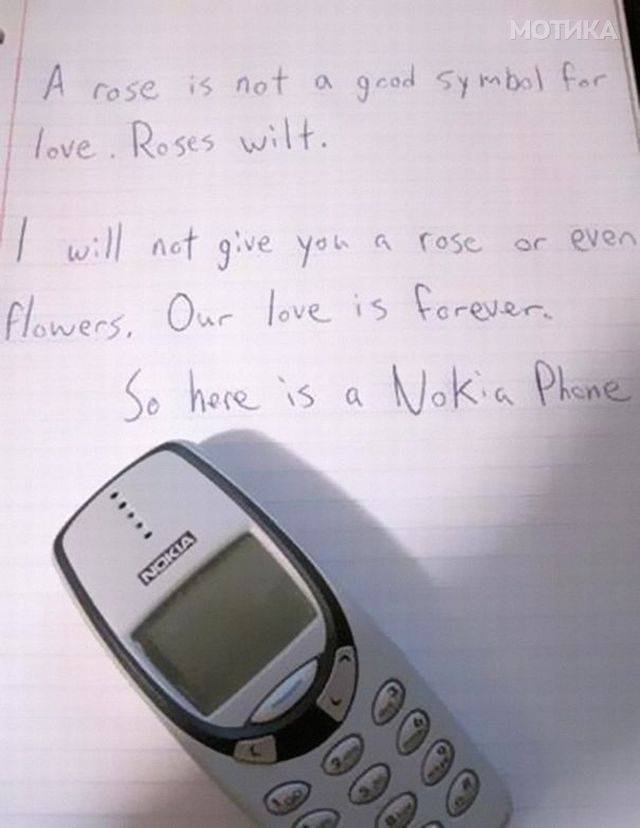 МОТИКА
A rose is not a good symbol for
love. Roses wilt.
I will not give you a rose or even
flowers. Our love is forever.
So here is a Nokia Phone
NOKIA